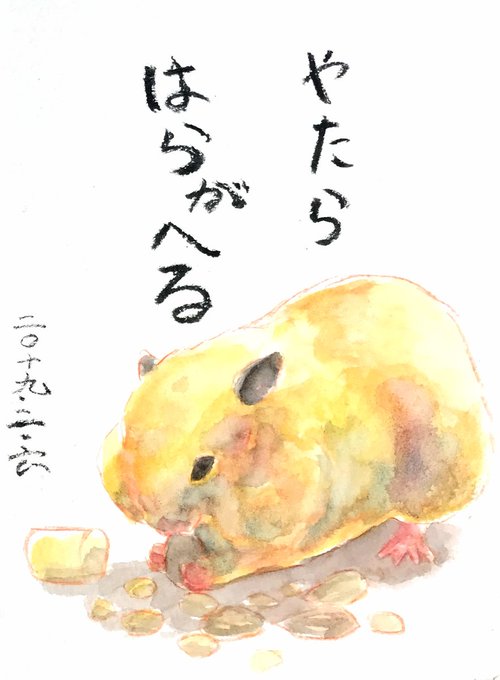 やたら
はらがへる
二〇十九・二・六